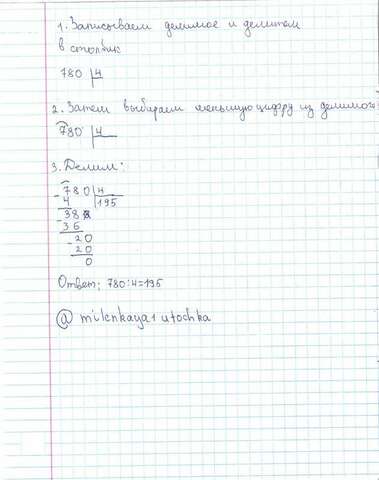 1. Записываем делимое и делитель
в столбик
780 | 4
2. Затем выбираем меньшую цифру из делимого
780 | 4
3. Делим:
- 780 | 4
4 | 195
- 38
36
- 20
20
0
Ответ: 780:4=195
@ milenkaya1utochka